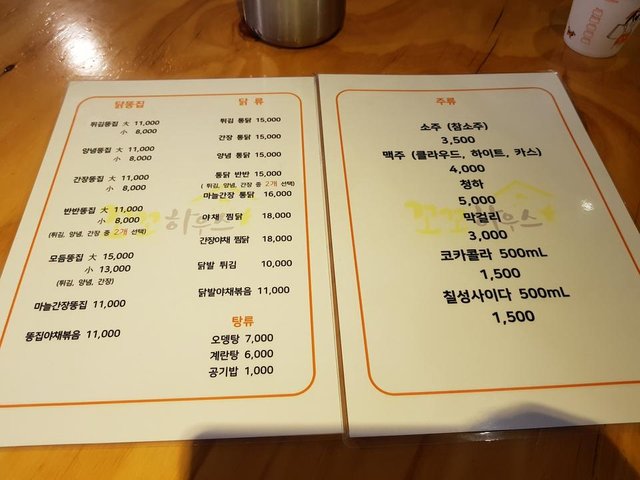 닭똥집
튀김똥집 大 11,000
小 8,000
양념똥집 大 11,000
小 8,000
간장똥집 大 11,000
小 8,000
반반똥집 大 11,000
小 8,000
(튀김, 양념, 간장 중 2개 선택)
모듬똥집 大 15,000
小 13,000
(튀김, 양념, 간장)
마늘간장똥집 11,000
똥집야채볶음 11,000
닭 류
튀김 통닭 15,000
간장 통닭 15,000
양념 통닭 15,000
통닭 반반 15,000
( 튀김, 양념, 간장 중 2개 선택)
마늘간장 통닭 16,000
야채 찜닭 18,000
간장야채 찜닭 18,000
닭발 튀김 10,000
닭발야채볶음 11,000
탕류
오뎅탕 7,000
계란탕 6,000
공기밥 1,000
꼬꼬하우스
주류
소주 (참소주)
3,500
맥주 (클라우드, 하이트, 카스)
4,000
청하
5,000
막걸리
3,000
코카콜라 500mL
1,500
칠성사이다 500mL
1,500
꼬꼬하우스